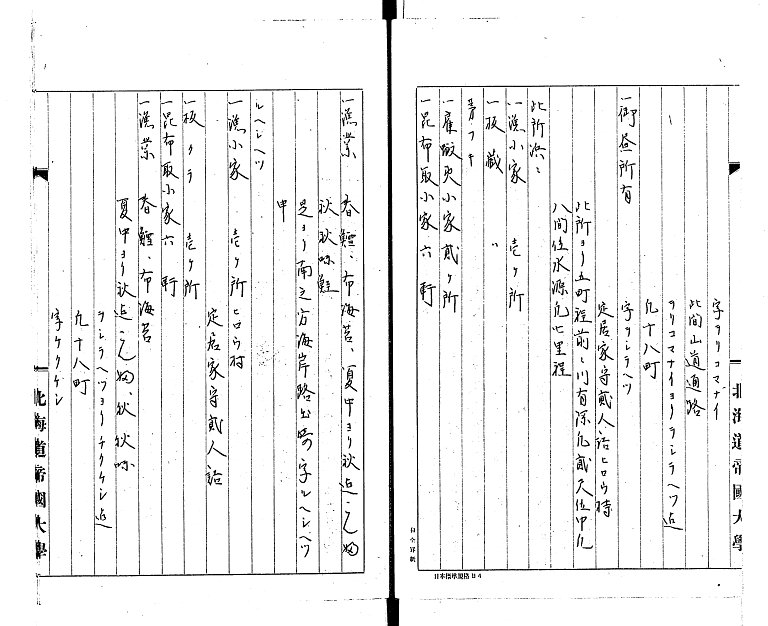 字ヲリコマナイ
此間山道通路
ヲリコマナイヨリヲシラヘツ迄
凡十八町
一御昼所有　字ヲシラヘツ
定居家守貳人詰ヒロウ持
此所ヨリ五町程前ニ川有深凡貳尺位巾凡
八間位水源凡七里程
此所浜ニ
一漁小家　壱ヶ所
一板蔵　〃
一雇蝦夷小家貳ヶ所
一昆布取小家六軒
北海道帝國大學
日本標準規格B4
一漁業　春鱈、布海苔、夏中ヨリ秋迄
秋秋味鮭
是ヨリ南之方海岸路出崎字ルヘシヘツ
申
ルヘシヘツ
一漁小家　壱ヶ所ヒロウ持
定居家守貳人詰
一板クラ　壱ヶ所
一昆布取小家六軒
一漁業　春鱈、布海苔
夏中ヨリ秋迄、秋秋味
ヲシラヘツヨリチクケシ迄
凡十八町
字ケクケシ
北海道帝國大學